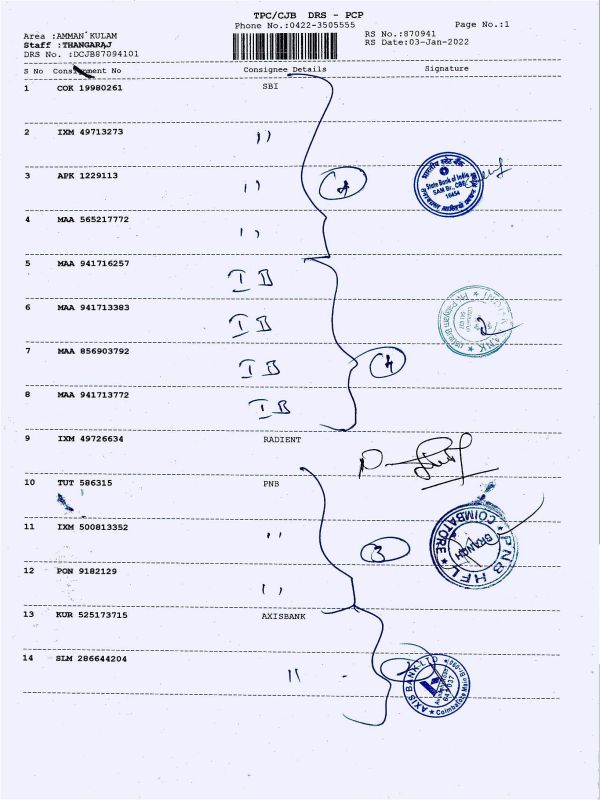 TPC/CJB DRS - PCP
Phone No.:0422-3505555
Page No.:1
Area :AMMAN KULAM
RS No.:870941
Staff :THANGARAJ
RS Date:03-Jan-2022
DRS No. :DCJB87094101
S No Consignment No Consignee Details Signature
1 COK 19980261 SBI
2 IXM 49713273 ''
3 APK 1229113 ''
4
भारतीय स्टेट बैंक
State Bank of India
SAM Br., CBE
4 MAA 565217772 ''
5 MAA 941716257 IB
6 MAA 941713383 IB
7 MAA 856903792 IB
4
8 MAA 941713772 IB
9 IXM 49726634 RADIENT
10 TUT 586315 PNB
11 IXM 500813352 ''
3
PNB HFL
BRANCH
COIMBATORE
12 PON 9182129 ''
13 KUR 525173715 AXISBANK
14 SLM 286644204 ''
2
AXIS BANK LTD
Coimbatore Main